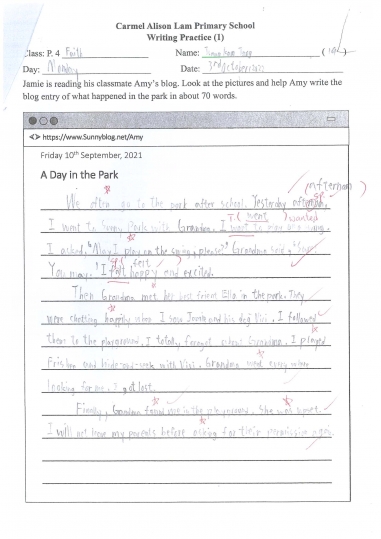 Carmel Alison Lam Primary School
Writing Practice (1)
Class: P. 4 Faith Name: ( )
Day: Monday Date: 3rd October 2022
Jamie is reading his classmate Amy's blog. Look at the pictures and help Amy write the
blog entry of what happened in the park in about 70 words.
https://www.Sunnyblog.net/Amy
Friday 10th September, 2021
A Day in the Park
(afternoon)
We often go to the park after school. Yesterday
T.( went ) wanted
I went to Sunny Park with Grandma. I want to play on a swing.
I asked, "May I play on the swing, please?" Grandma said, "Sure.
You may." I felt happy and excited.
Then Grandma met her best friend Ella in the park. They
were chatting happily when I saw Jamie and his dog Vivi. I followed
them to the playground. I totally forgot about Grandma. I played
Frisbee and hide-and-seek with Vivi. Grandma went every where
looking for me. I got lost.
Finally, Grandma found me in the playground. She was upset.
I will not leave my parents before asking for their permission again.